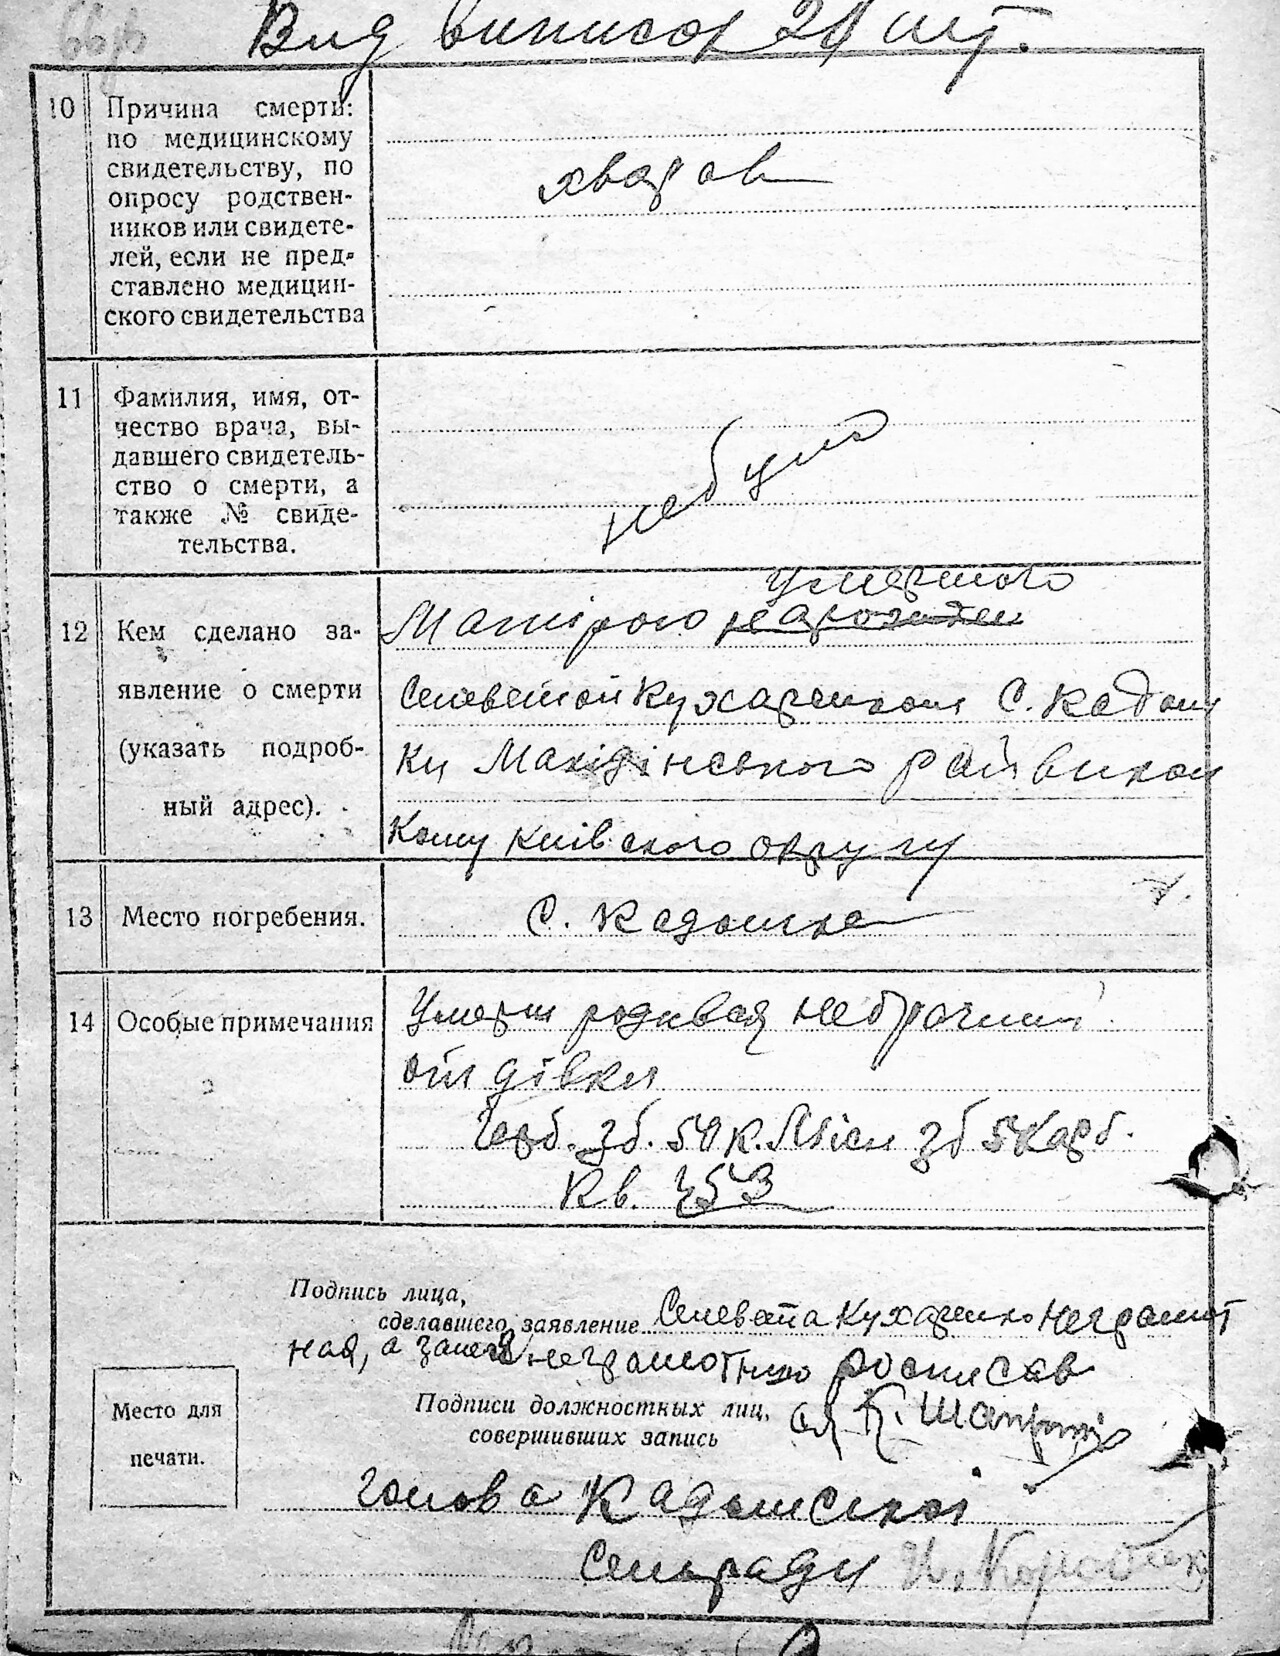 Вид виписор 21 шт.
10 Причина смерти:
по медицинскому
свидетельству, по
опросу родствен-
ников или свидете-
лей, если не пред-
ставлено медицин-
ского свидетельства
хварав
11 Фамилия, имя, от-
чество врача, вы-
давшего свидетель-
ство о смерти, а
также № свиде-
тельства.
небуло
12 Кем сделано за-
явление о смерти
(указать подроб-
ный адрес).
умершого
Матірою нарожден
Селеветой Кухаренком С. Кадом
ки Макідінського райвикон
кому Київского округу
13 Место погребения.
С. Кадомка
14 Особые примечания
Умерш родився небрачний
от дівки
Герб. зб. 50 к. Міси зб 5 карб.
Кв. 353
Подпись лица,
сделавшего заявление Селевета Кухаренко неграмот
ная, а занеї неграмотную росписав
Подписи должностных лиц, К. Шап
совершивших запись
Место для
печати.
Голова Кадомскої
Сельради И. Коробек